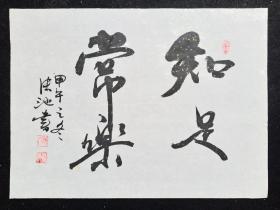 知足
常樂
甲午之冬
法池書